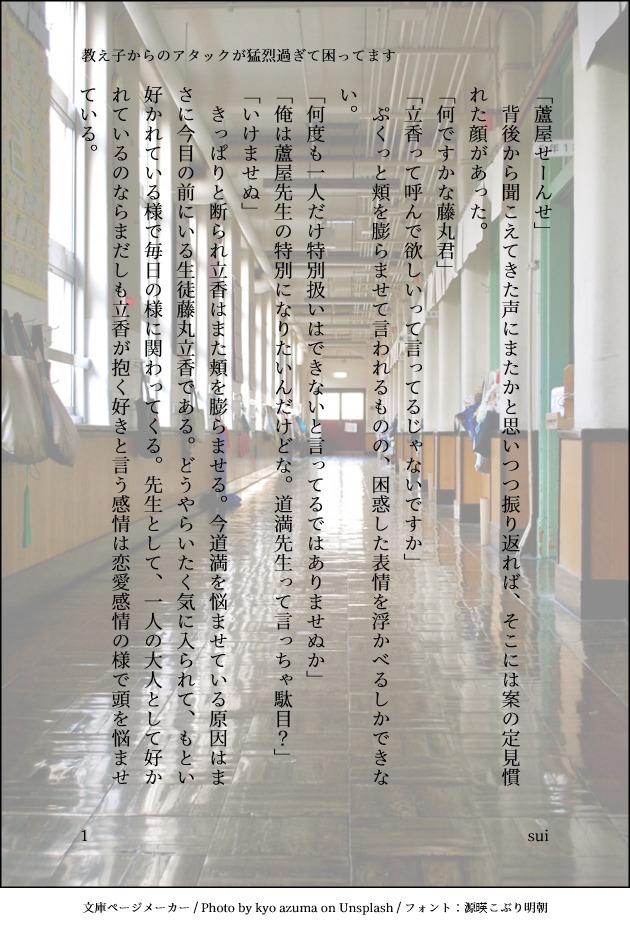 教え子からのアタックが猛烈過ぎて困ってます
「蘆屋せーんせ」
　背後から聞こえてきた声にまたかと思いつつ振り返れば、そこには案の定見慣
れた顔があった。
「何ですかな藤丸君」
「立香って呼んで欲しいって言ってるじゃないですか」
　ぷくっと頬を膨らませて言われるものの、困惑した表情を浮かべるしかできな
い。
「何度も一人だけ特別扱いはできないと言ってるではありませぬか」
「俺は蘆屋先生の特別になりたいんだけどな。道満先生って言っちゃ駄目？」
「いけませぬ」
　きっぱりと断られ立香はまた頬を膨らませる。今道満を悩ませている原因はま
さに今目の前にいる生徒藤丸立香である。どうやらいたく気に入られて、もとい
好かれている様で毎日の様に関わってくる。先生として、一人の大人として好か
れているのならまだしも立香が抱く好きと言う感情は恋愛感情の様で頭を悩ませ
ている。
sui
1
文庫ページメーカー / Photo by kyo azuma on Unsplash / フォント：源暎こぶり明朝